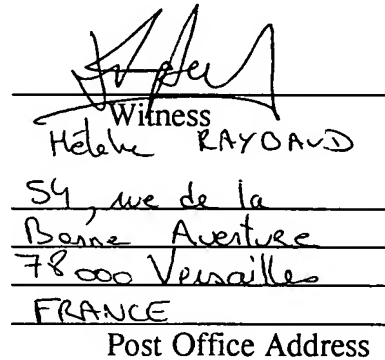 Witness
Hélène RAYBAUD
54, rue de la
Bonne Aventure
78000 Versailles
FRANCE
Post Office Address